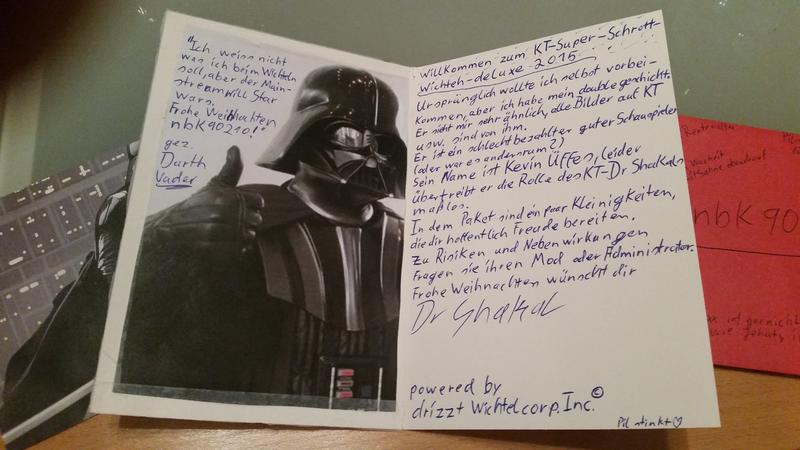 "Ich weiss nicht
was ich beim Wichteln
soll, aber der Main-
stream will Star
wars.
Frohe Weihnachten
nbk90210!"
gez.
Darth
Vader
Willkommen zum KT-Super-Schrott-
Wichteln-deluxe-2015
Ursprünglich wollte ich selbst vorbei-
kommen, aber ich habe mein double geschickt.
Er sieht mir sehr ähnlich, alle Bilder auf KT
usw. sind von ihm.
Er ist ein schlechtbezahlter guter Schauspieler
(oder war es andersrum?)
Sein Name ist Kevin Üffes, leider
übertreibt er die Rolle des KT-Dr Shakals
maßlos.
In dem Paket sind ein paar Kleinigkeiten,
die dir hoffentlich Freude bereiten.
Zu Risiken und Nebenwirkungen
fragen sie ihren Mod oder Administrator.
Frohe Weihnachten wünscht dir
Dr Shakal
powered by
drizzt Wichtelcorp. Inc.©
Pil stinkt♡
nbk 90